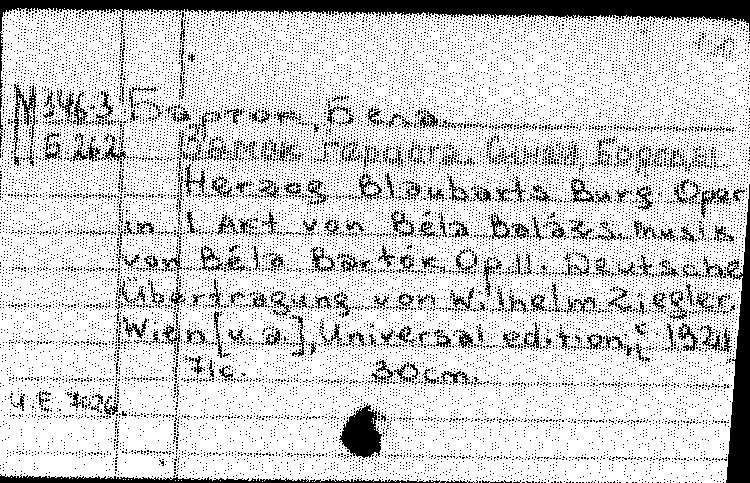 М 146-3 Барток, Бела.
Б 262 Замок герцога Синей Бороды.
Herzog Blaubarts Burg. Oper
in 1 Akt von Béla Balázs. Musik
von Béla Bartók. Op. 11. Deutsche
Übertragung von Wilhelm Ziegler.
Wien [u. a.], Universal edition, c. 1921
71 с. 30 cm.
U. E. 7026.